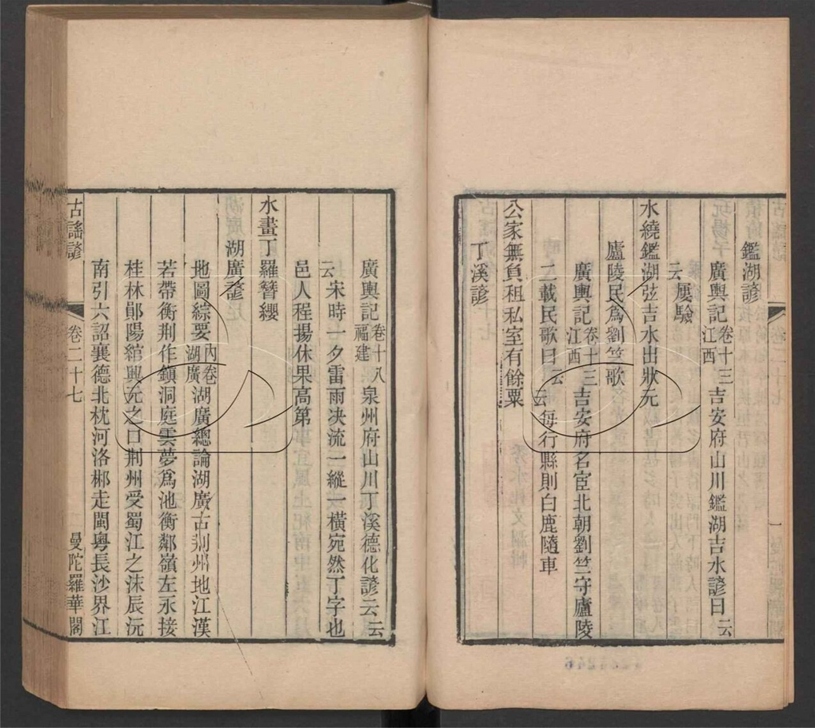 鑑湖諺
廣輿記卷十三江西吉安府山川鑑湖吉水諺曰云
云屢驗
水繞鑑湖弦吉水出狀元
廬陵民爲劉竺歌
廣輿記卷十三江西吉安府名宦北朝劉竺守廬陵
二載民歌曰云云每行縣則白鹿隨車
公家無負租私室有餘粟
丁溪諺
廣輿記卷十八福建泉州府山川丁溪德化諺云云
云宋時一夕雷雨决流一縱一橫宛然丁字也
邑人程揚休果高第
水畫丁羅簪纓
湖廣諺
地圖綜要內卷湖廣湖廣總論湖廣古荆州地江漢
若帶衡荆作鎮洞庭雲夢爲池衡鄰嶺左永接
桂林鄖陽綰興元之口荆州受蜀江之沬辰沅
南引六詔襄德北枕河洛郴走閩粵長沙界江
古謠諺
卷二十七
曼陀羅華閣